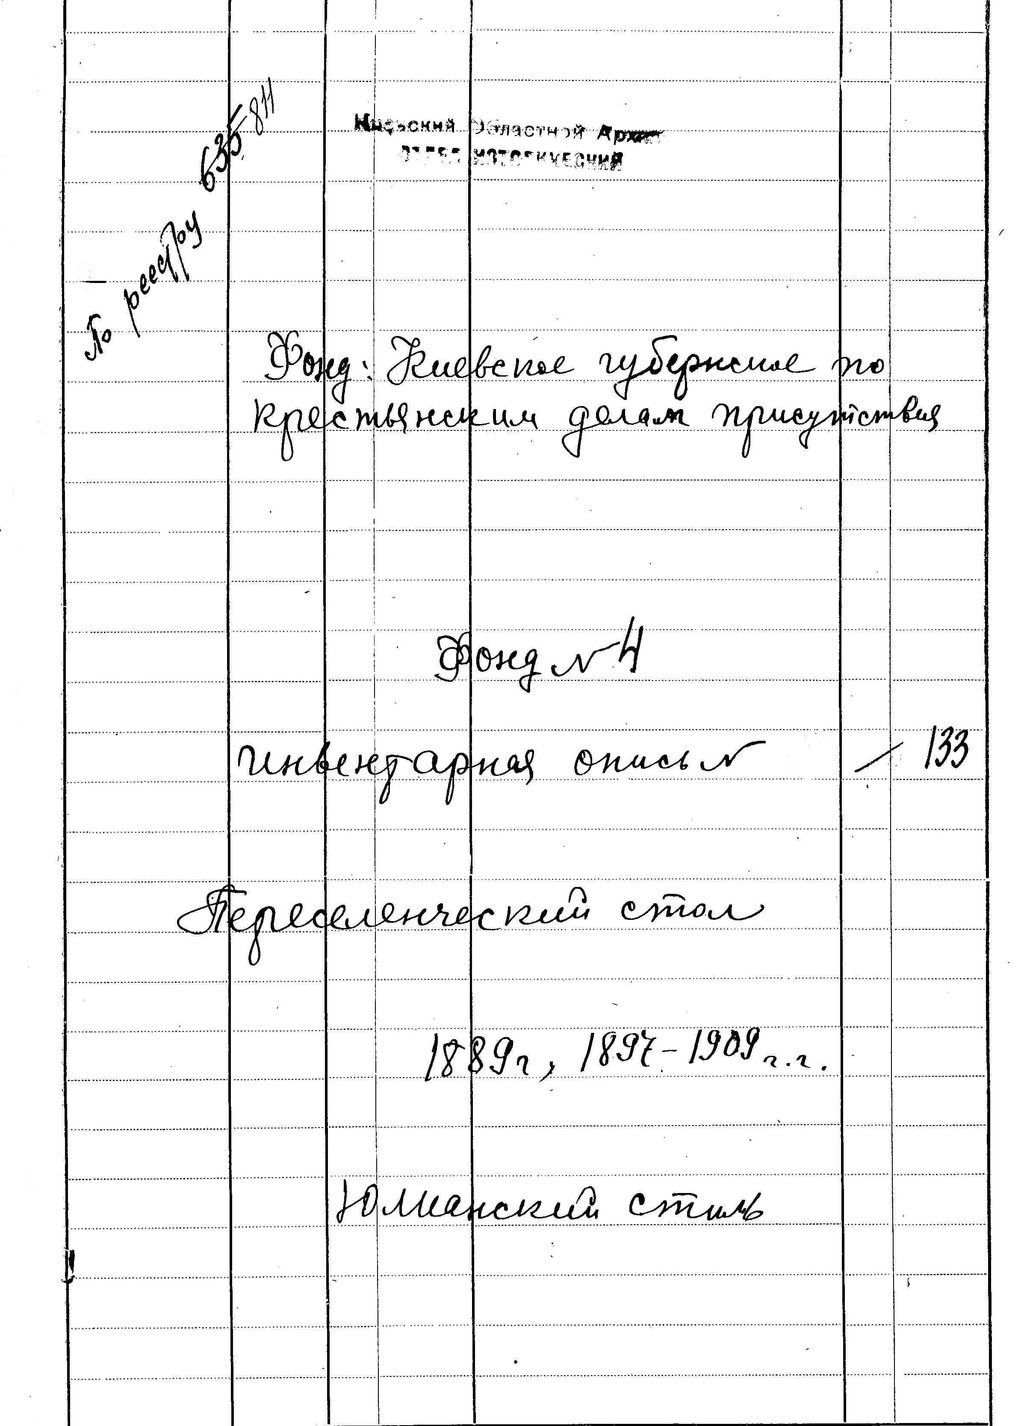 Киевский Областной Архив
ОТДЕЛ ИСТОРИЧЕСКИЙ
По реестру 635-811
Фонд: Киевское губернское по
крестьянским делам присутствия
Фонд № 4
инвентарная опись № / 133
Переселенческий стол
1889г, 1897-1909 г.г.
Юлианский стиль